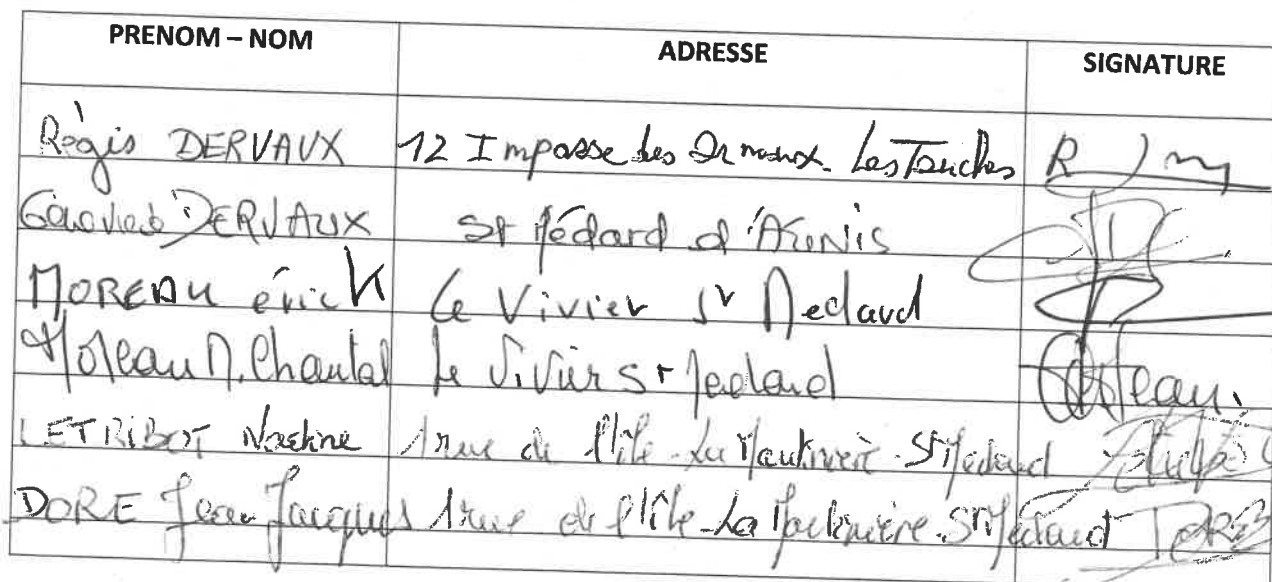 PRENOM – NOM ADRESSE SIGNATURE
Régis DERVAUX 12 Impasse des Ormeaux. Les Touches R
DERVAUX St Médard d'Aunis
MOREAU éricK Le Vivier St Medard
Moreau M. Chantal Le Vivier St Medard Moreau.
LETRIBOT Nadine 1 rue de l'île - La St Medard
DORE Jean Jacques 1 rue de l'île - La St Medard DORE